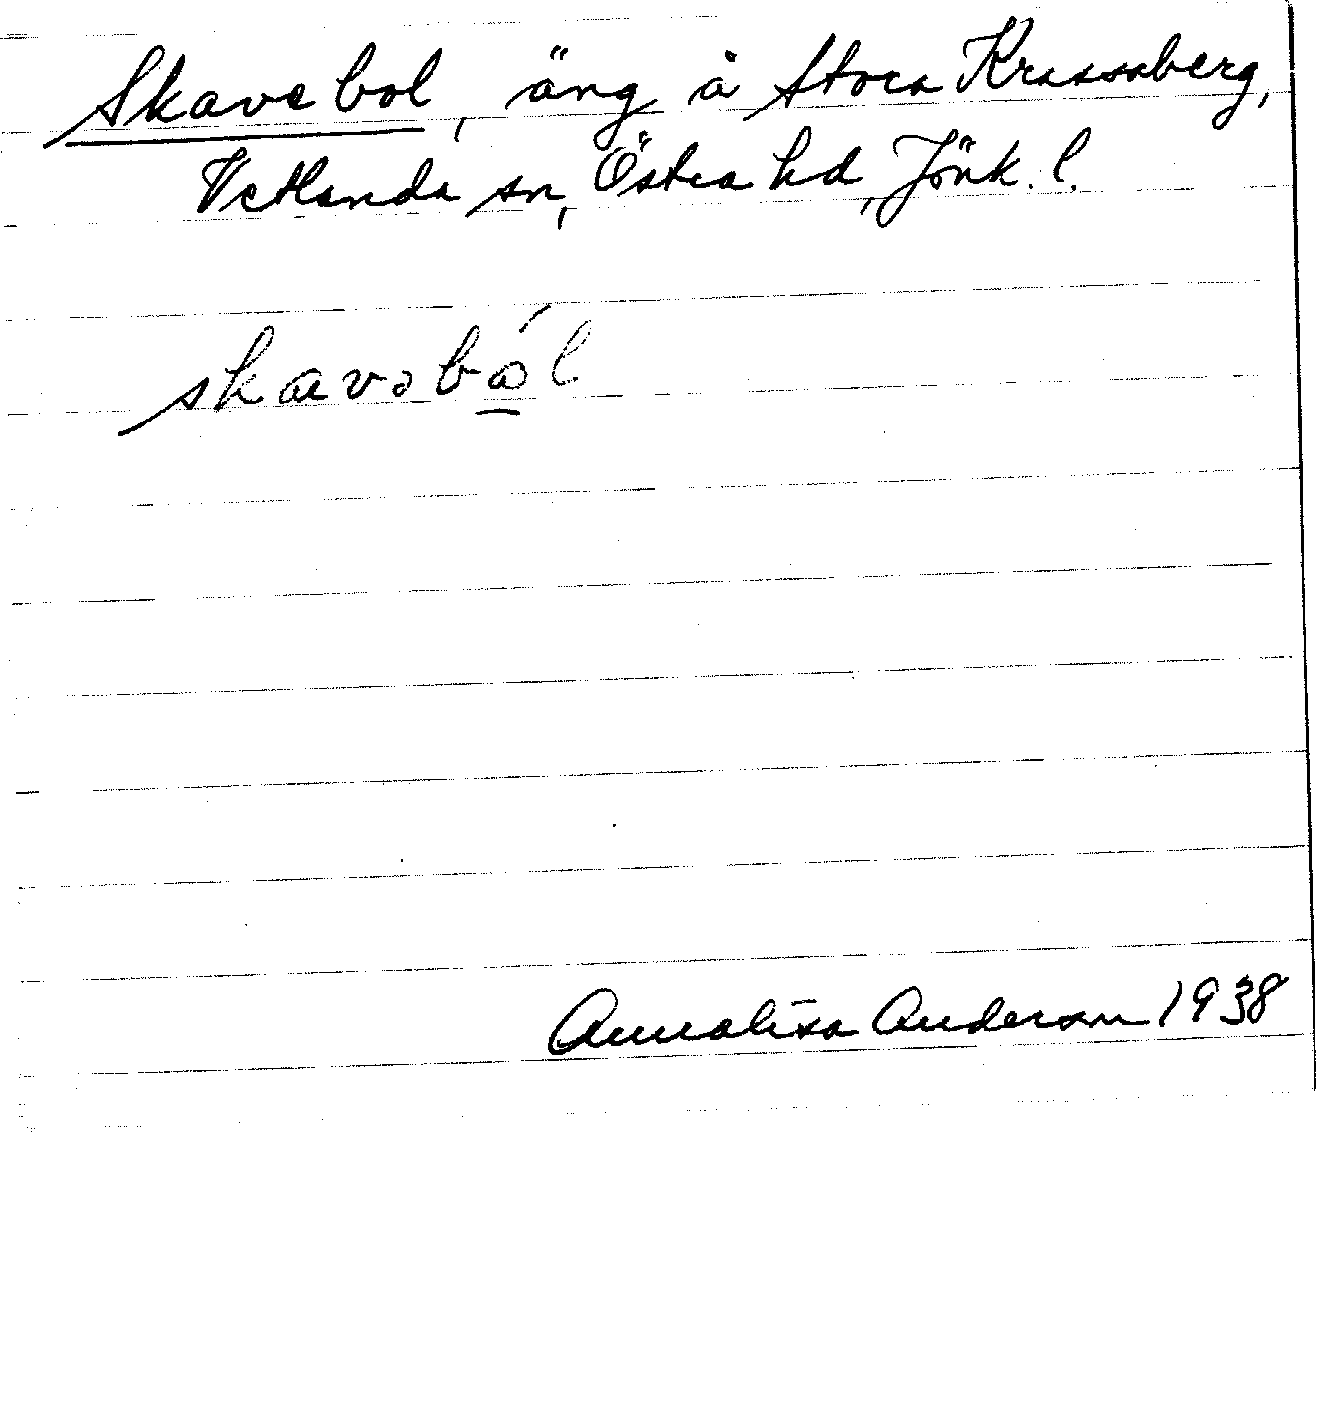 Skavebol, äng å Stora Krassaberg,
Vetlanda sn, Östra hd, Jönk. l.
skavəból
Annalisa Anderson 1938